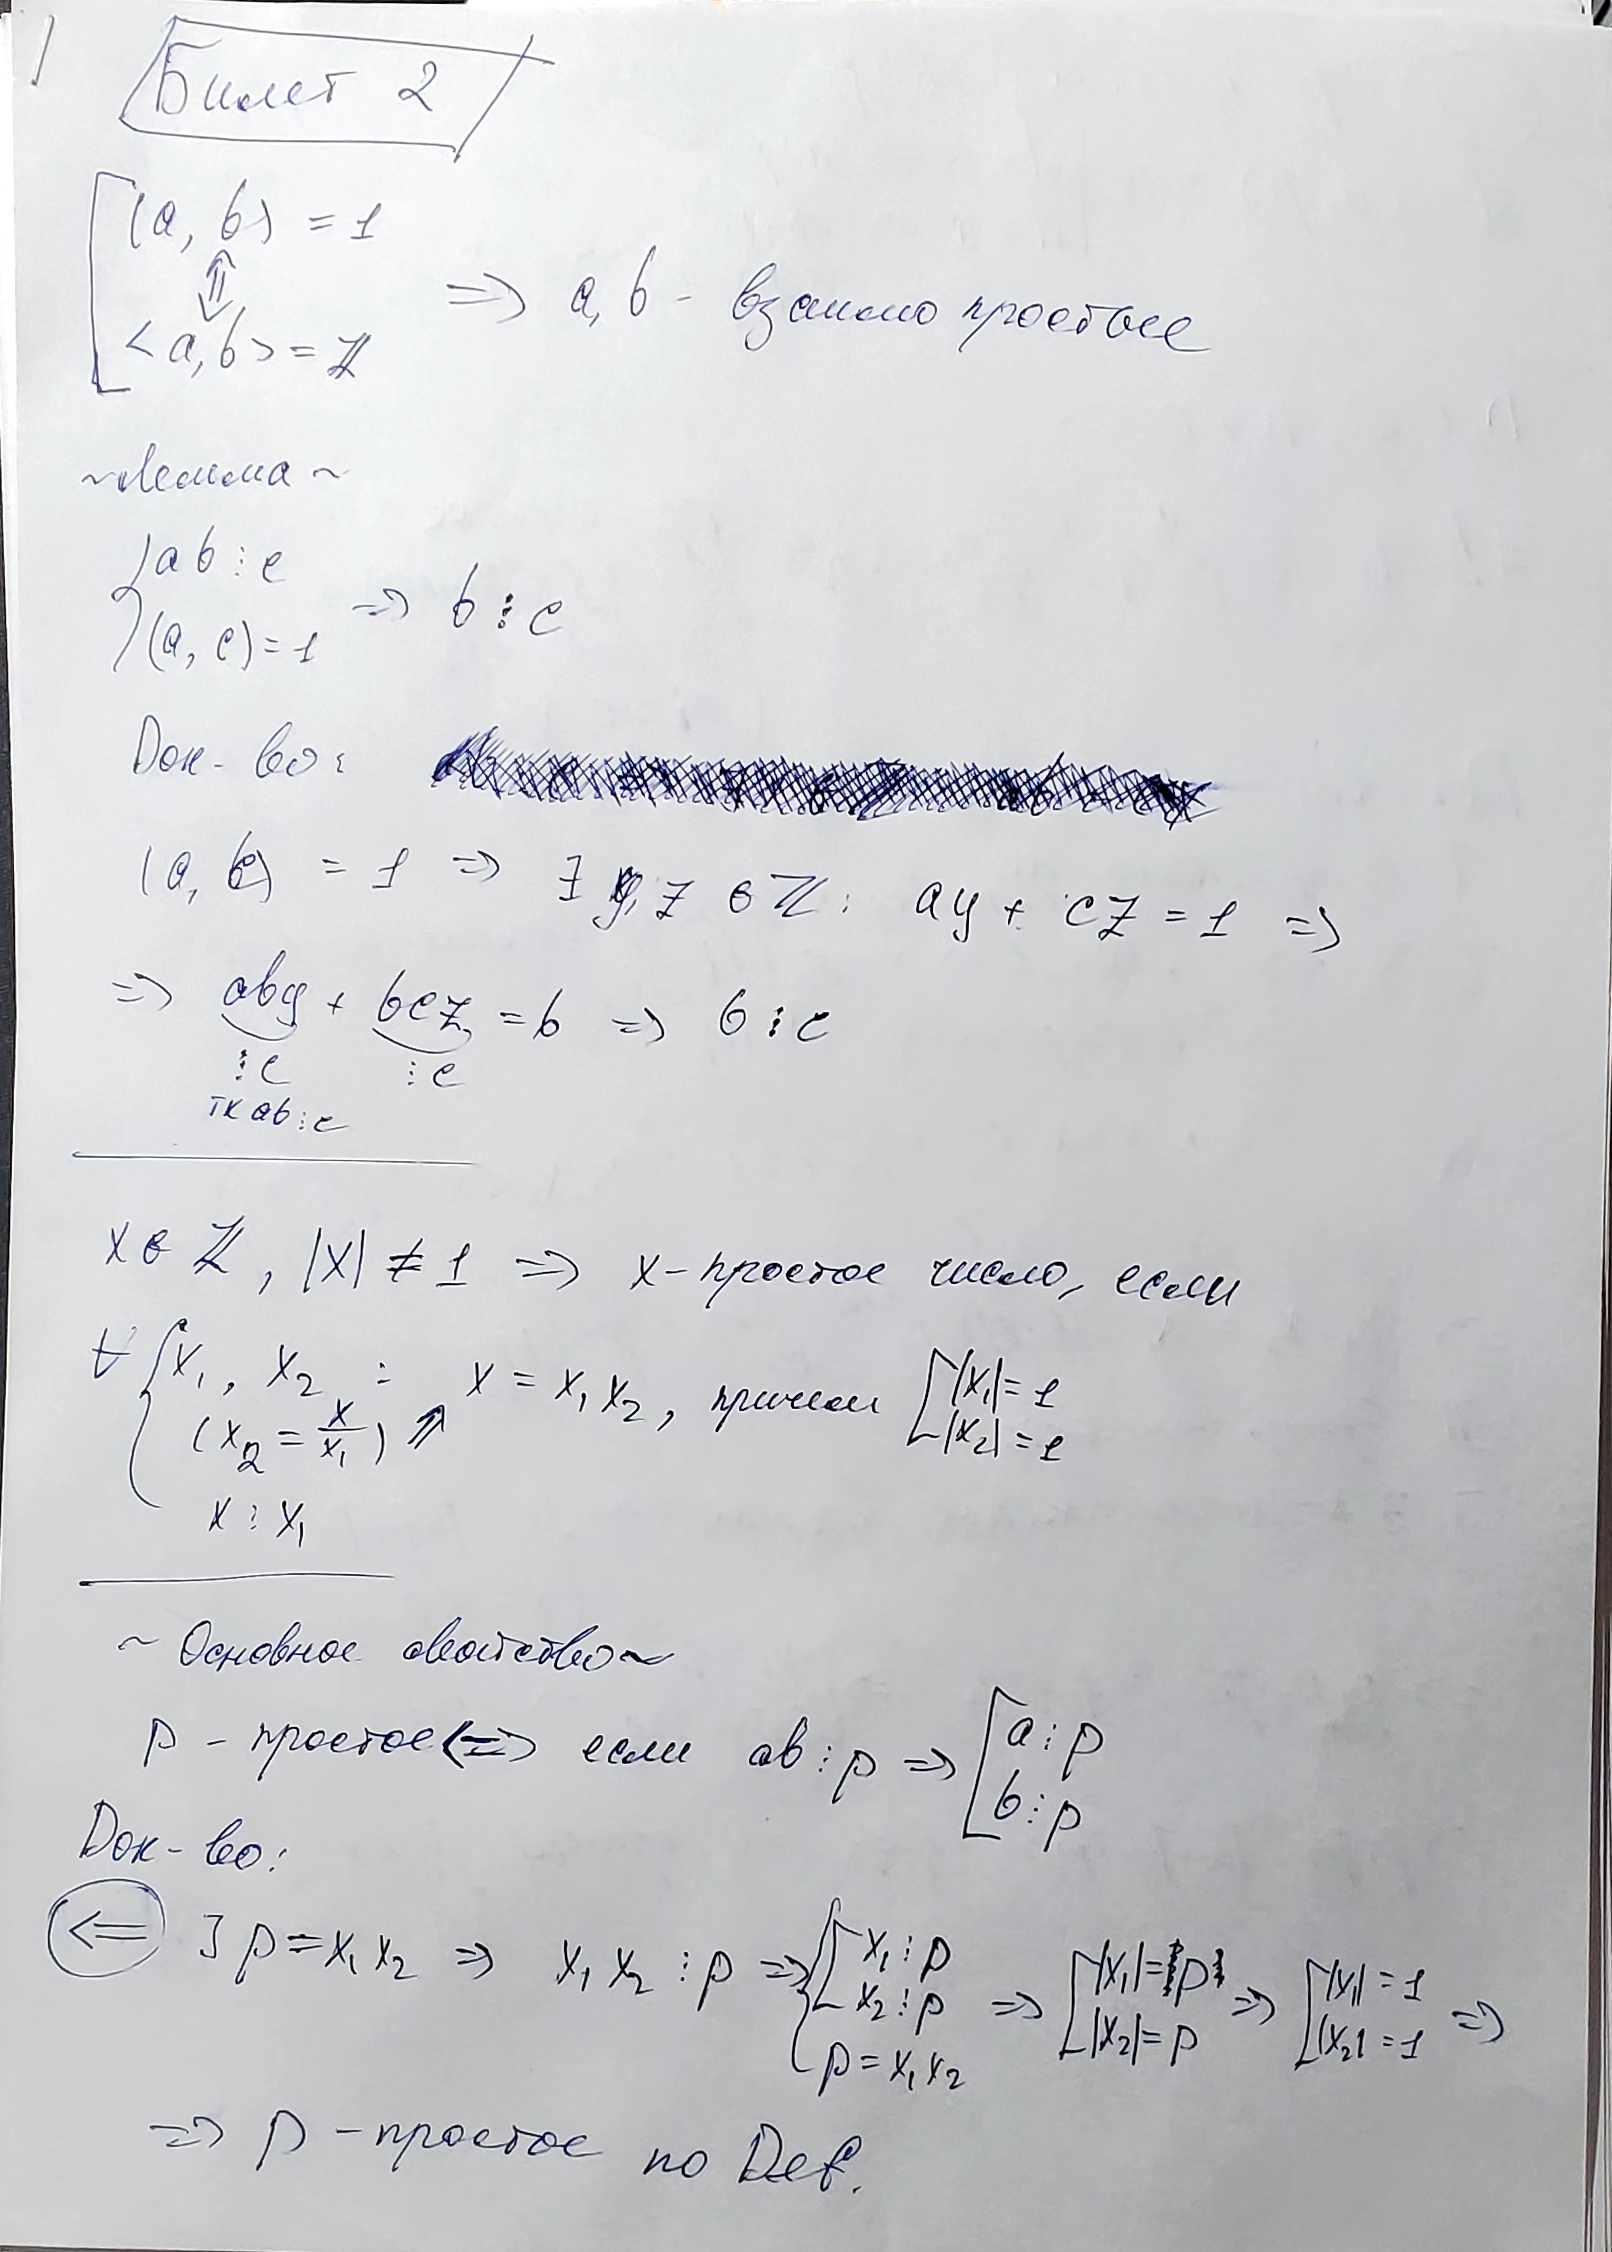 Билет 2
(a, b) = 1
⇕ ⇒ a, b - взаимо простые
<a, b> = ℤ
~Лемма~
{ab ⋮ c
{(a, c) = 1 ⇒ b ⋮ c
Док-во:
(a, c) = 1 ⇒ ∃ y, z ∈ ℤ: ay + cz = 1 ⇒
⇒ aby + bcz = b ⇒ b ⋮ c
⋮ c ⋮ c
тк ab ⋮ c
x ∈ ℤ, |x| ≠ 1 ⇒ x - простое число, если
∀ {x₁, x₂ : x = x₁x₂, причем [|x₁| = 1
(x₂ = x/x₁) ⇗ [|x₂| = 1
x ⋮ x₁
~ Основное свойство ~
p - простое ⇔ если ab ⋮ p ⇒ [a ⋮ p
[b ⋮ p
Док-во:
⇐ ] p = x₁x₂ ⇒ x₁x₂ ⋮ p ⇒ {[x₁ ⋮ p
[x₂ ⋮ p ⇒ [|x₁| = p
[|x₂| = p ⇒ [|x₁| = 1
[|x₂| = 1 ⇒
p = x₁x₂
⇒ p - простое по Def.